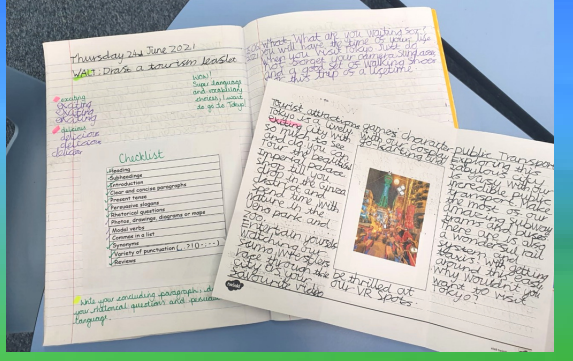 Thursday 24th June 2021
WALT: Draft a tourism leaflet
exciting
exciting
exciting
exciting
delicious
delicious
delicious
delicious
WOW!
Super language
and vocabulary
choices, I want
to go to Tokyo!
Checklist
Heading
Subheadings
Introduction
Clear and concise paragraphs
Present tense
Persuasive slogans
Rhetorical questions
Photos, drawings, diagrams or maps
Modal verbs
Commas in a list
Synonyms
Variety of punctuation
Reviews
your concluding paragraph,
your rhetorical questions and
language.
What are you waiting for?
You will have the time of your life
when you visit Tokyo. Just do
not forget your camera, sunglasses
and a of walking shoes
trip of a lifetime.
Tourist attractions
Tokyo is a lively
exciting city with
so much to see
and do. you can
Tour the beautiful
imperial palace
shop till you
drop in the Ginza
district,
spend time with
nature in the
park and
zoo.
Entertain yourself
watching the
sumo wrestlers
race through the
city of your
favourite video
games character
with our comical
go-karting
be thrilled at
our VR spots.
public Transport
Exploring this
fabulous city
is easy with our
incredible public
transport. Make
the most of our
amazing subway
trams and buses
there are also
a wonderful rail
system and
taxis! with getting
around this easy
why wouldn't you
want to visit
Tokyo?